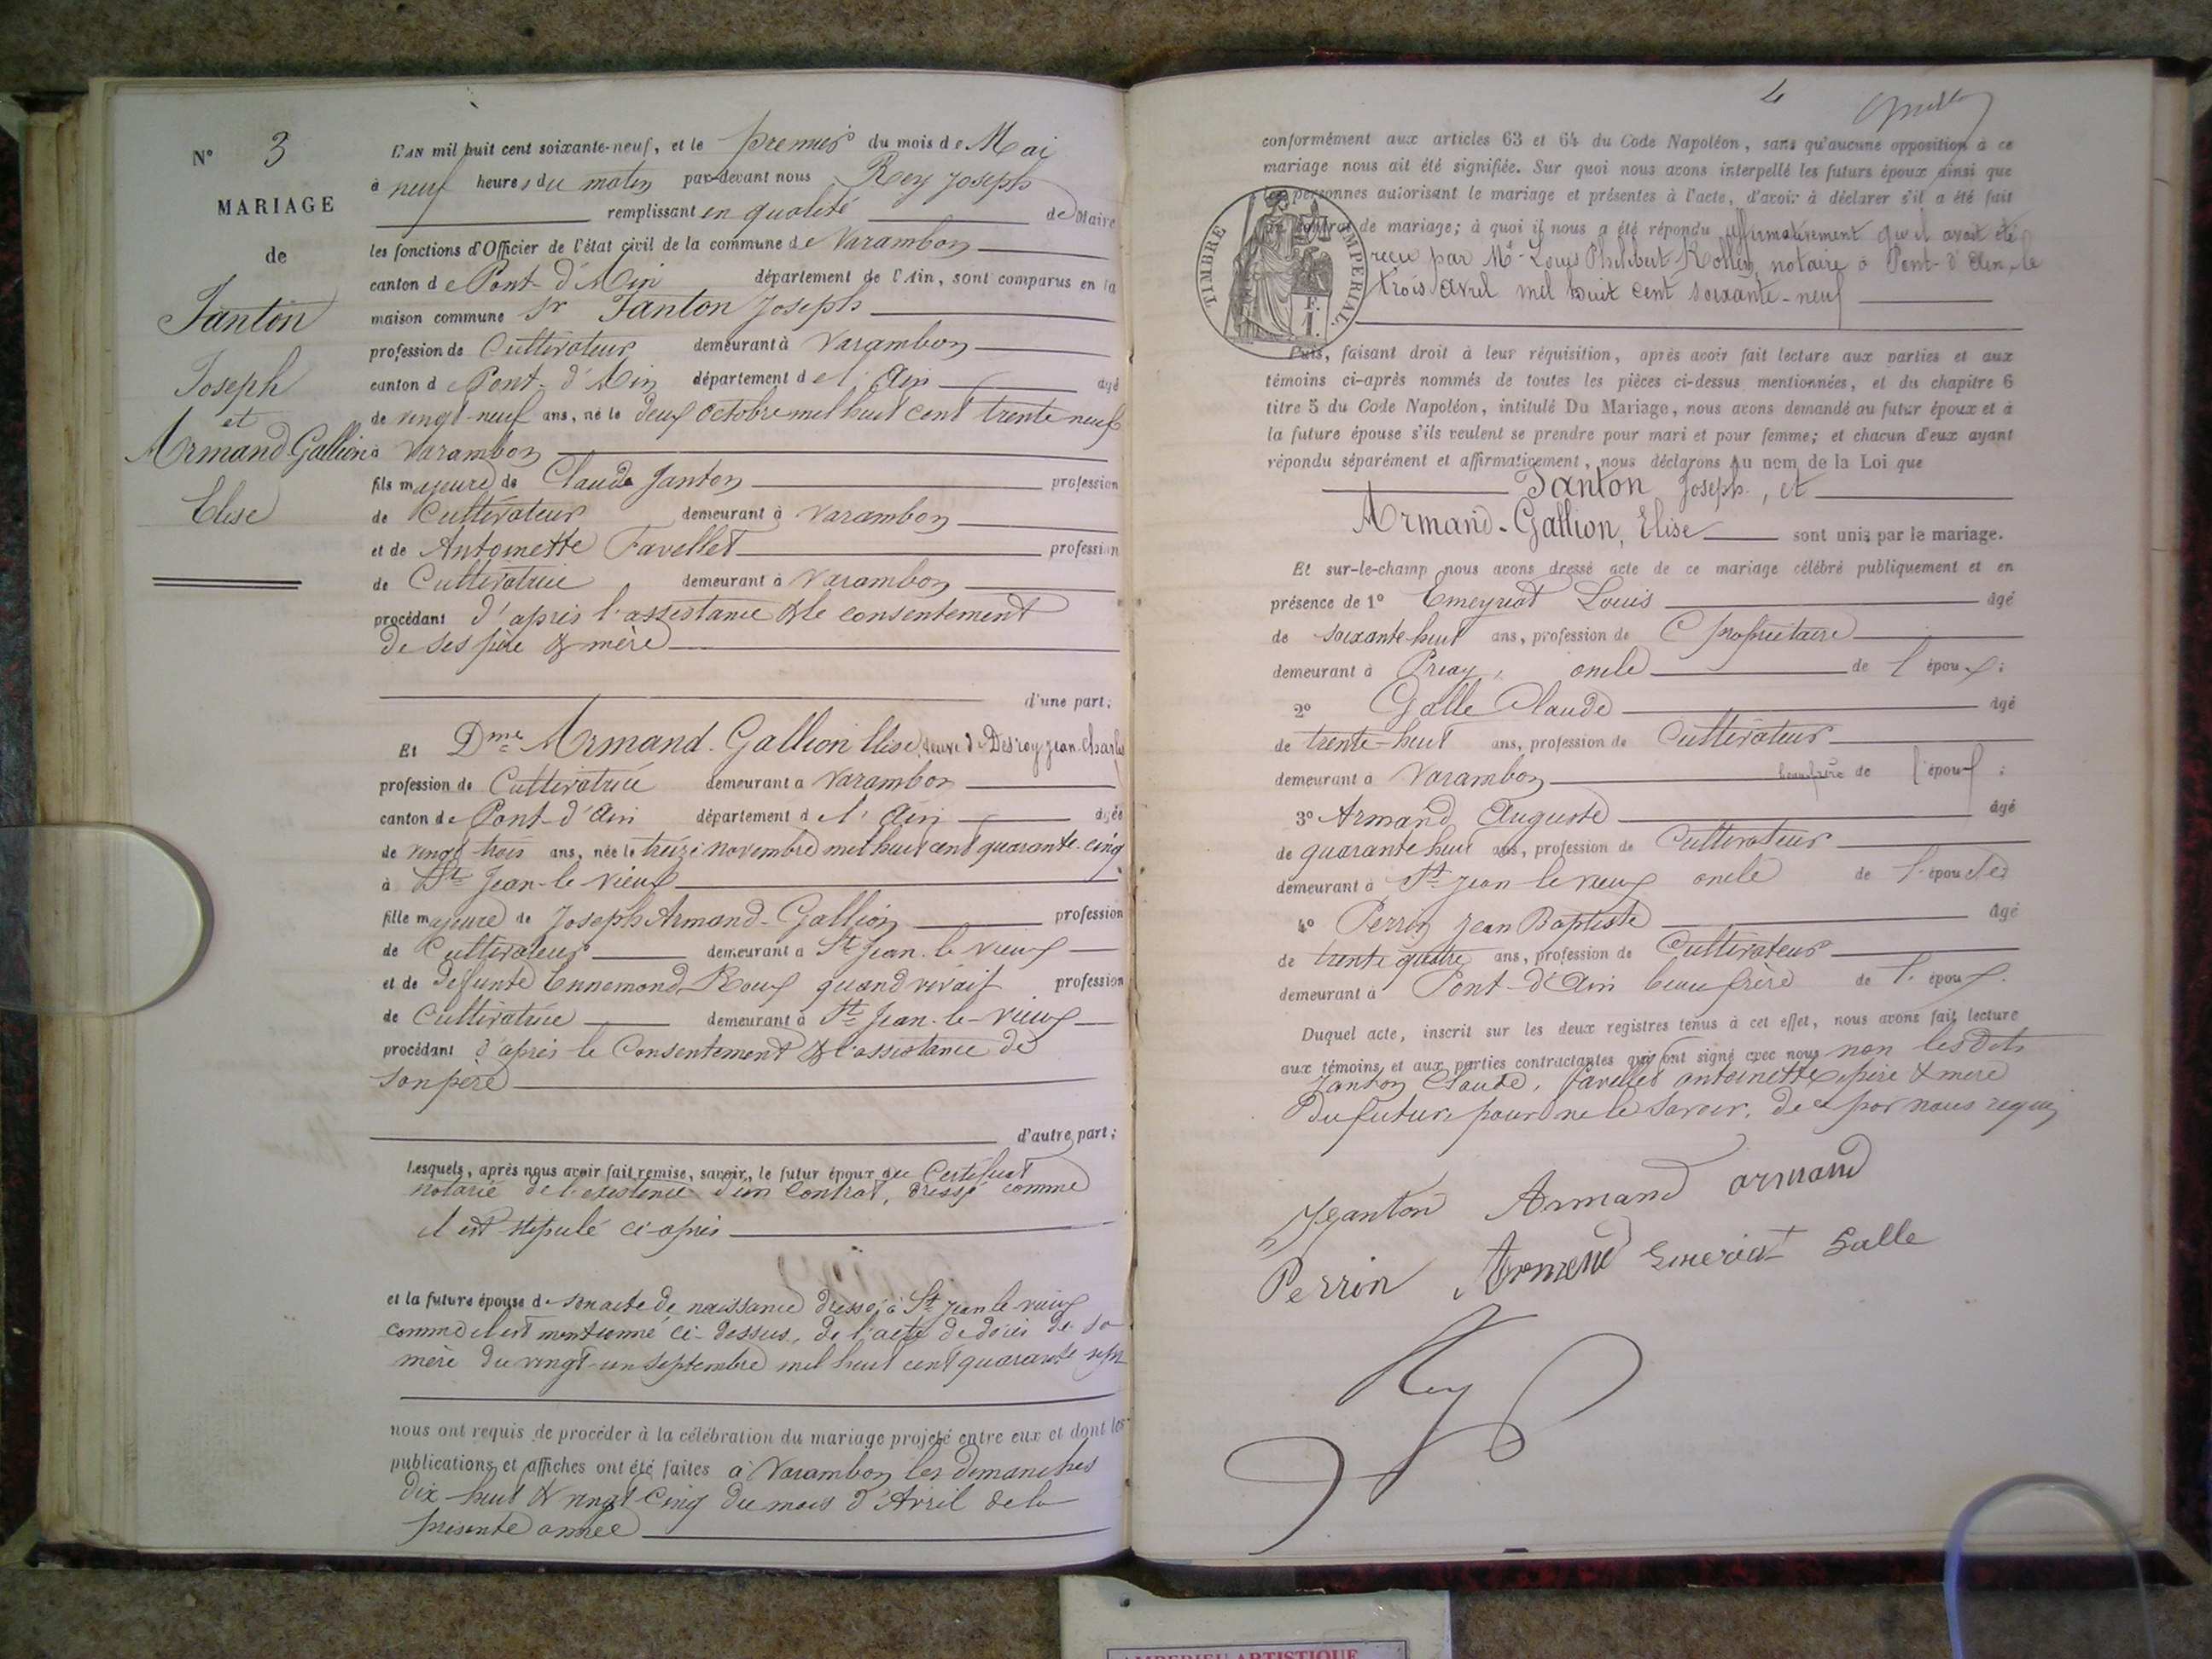 N° 3
MARIAGE
de
Janton
Joseph
et
Armand Gallion
Elise
L'AN mil huit cent soixante-neuf, et le premier du mois de Mai
à neuf heures du matin par-devant nous Rey Joseph
remplissant en qualité de Maire
les fonctions d'Officier de l'état civil de la commune de Varambon
canton de Pont-d'Ain département de l'Ain, sont comparus en la
maison commune Sr Janton Joseph
profession de Cultivateur demeurant à Varambon
canton de Pont-d'Ain département de l'Ain agé
de vingt-neuf ans, né le deux octobre mil huit cent trente neuf
à Varambon
fils majeur de Claude Janton profession
de Cultivateur demeurant à Varambon
et de Antoinette Favellet profession
de Cultivatrice demeurant à Varambon
procédant d'après l'assistance & le consentement
de ses père & mère
d'une part;
Et Dme Armand-Gallion Elise, veuve de Desroy Jean Charles
profession de Cultivatrice demeurant à Varambon
canton de Pont-d'Ain département de l'Ain agée
de vingt trois ans, née le treize novembre mil huit cent quarante-cinq
à St Jean-le-vieux
fille majeure de Joseph Armand-Gallion profession
de Cultivateur demeurant à St Jean-le-vieux
et de défunte Ennemond Roux quand vivait profession
de Cultivatrice demeurant à St Jean-le-vieux
procédant d'après le Consentement & l'assistance de
son père
d'autre part;
Lesquels, après nous avoir fait remise, savoir, le futur époux du Certificat
notarié de l'existence d'un Contrat, dressé comme
il est stipulé ci-après
et la future épouse de son acte de naissance dressé à St Jean le vieux
comme il est mentionné ci-dessus, de l'acte de décès de sa
mère du vingt-un septembre mil huit cent quarante sept
nous ont requis de procéder à la célébration du mariage projeté entre eux et dont les
publications et affiches ont été faites à Varambon les dimanches
dix-huit & vingt-cinq du mois d'Avril de la
présente année
4
conformément aux articles 63 et 64 du Code Napoléon, sans qu'aucune opposition à ce
mariage nous ait été signifiée. Sur quoi nous avons interpellé les futurs époux ainsi que
les personnes autorisant le mariage et présentes à l'acte, d'avoir à déclarer s'il a été fait
un contrat de mariage; à quoi il nous a été répondu affirmativement qu'il avait été
reçu par Me Louis Philibert Rollin, notaire à Pont-d'Ain, le
trois avril mil huit cent soixante-neuf
TIMBRE IMPERIAL
F.
1.
Puis, faisant droit à leur réquisition, après avoir fait lecture aux parties et aux
témoins ci-après nommés de toutes les pièces ci-dessus mentionnées, et du chapitre 6
titre 5 du Code Napoléon, intitulé Du Mariage, nous avons demandé au futur époux et à
la future épouse s'ils veulent se prendre pour mari et pour femme; et chacun d'eux ayant
répondu séparément et affirmativement, nous déclarons Au nom de la Loi que
Janton Joseph, et
Armand-Gallion, Elise sont unis par le mariage.
Et sur-le-champ nous avons dressé acte de ce mariage célébré publiquement et en
présence de 1° Emeyriat Louis âgé
de soixante huit ans, profession de Propriétaire
demeurant à Priay, oncle de l'époux;
2° Galle Claude âgé
de trente-huit ans, profession de Cultivateur
demeurant à Varambon beau frère de l'époux;
3° Armand Auguste âgé
de quarante huit ans, profession de Cultivateur
demeurant à St Jean le vieux oncle de l'épouse
4° Perrin Jean Baptiste âgé
de trente quatre ans, profession de Cultivateur
demeurant à Pont-d'Ain beau frère de l'époux.
Duquel acte, inscrit sur les deux registres tenus à cet effet, nous avons fait lecture
aux témoins et aux parties contractantes qui ont signé avec nous non les dits
Janton Claude, Favellet antoinette père & mère
du futur pour ne le savoir, de ce par nous requis
Jeanton Armand armand
Perrin Armand Emeriat Galle
Rey
AMBERIEU ARTISTIQUE